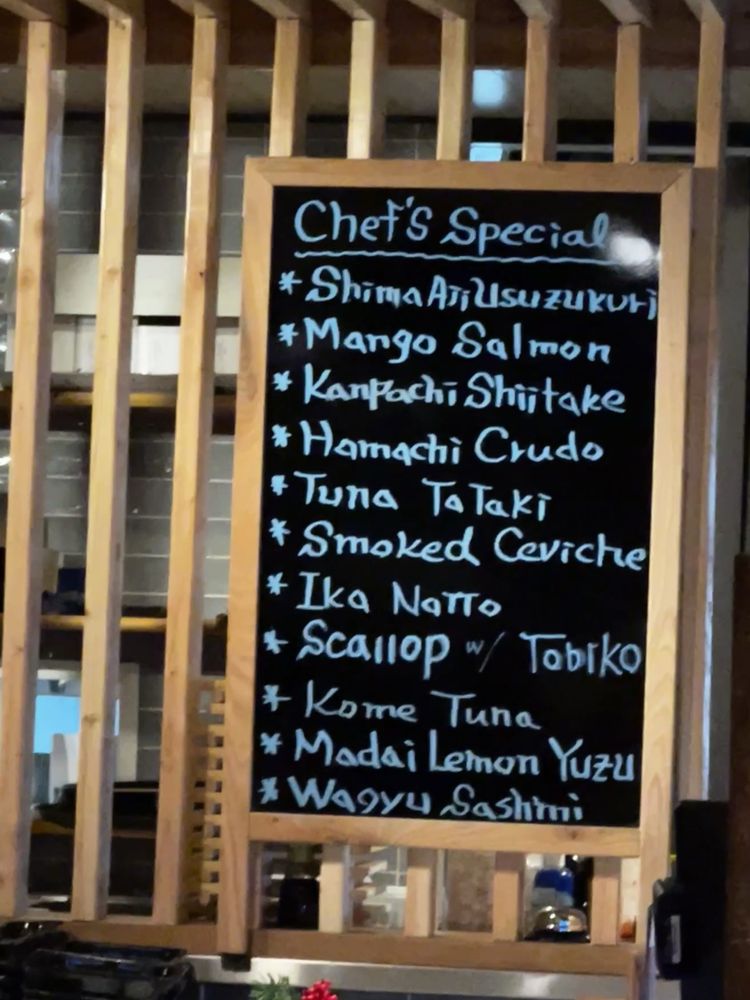 Chef's Special
* Shima Aji Usuzukuri
* Mango Salmon
* Kanpachi Shiitake
* Hamachi Crudo
* Tuna TaTaki
* Smoked Ceviche
* Ika Natto
* Scallop w/ Tobiko
* Kome Tuna
* Madai Lemon Yuzu
* Wagyu Sashimi